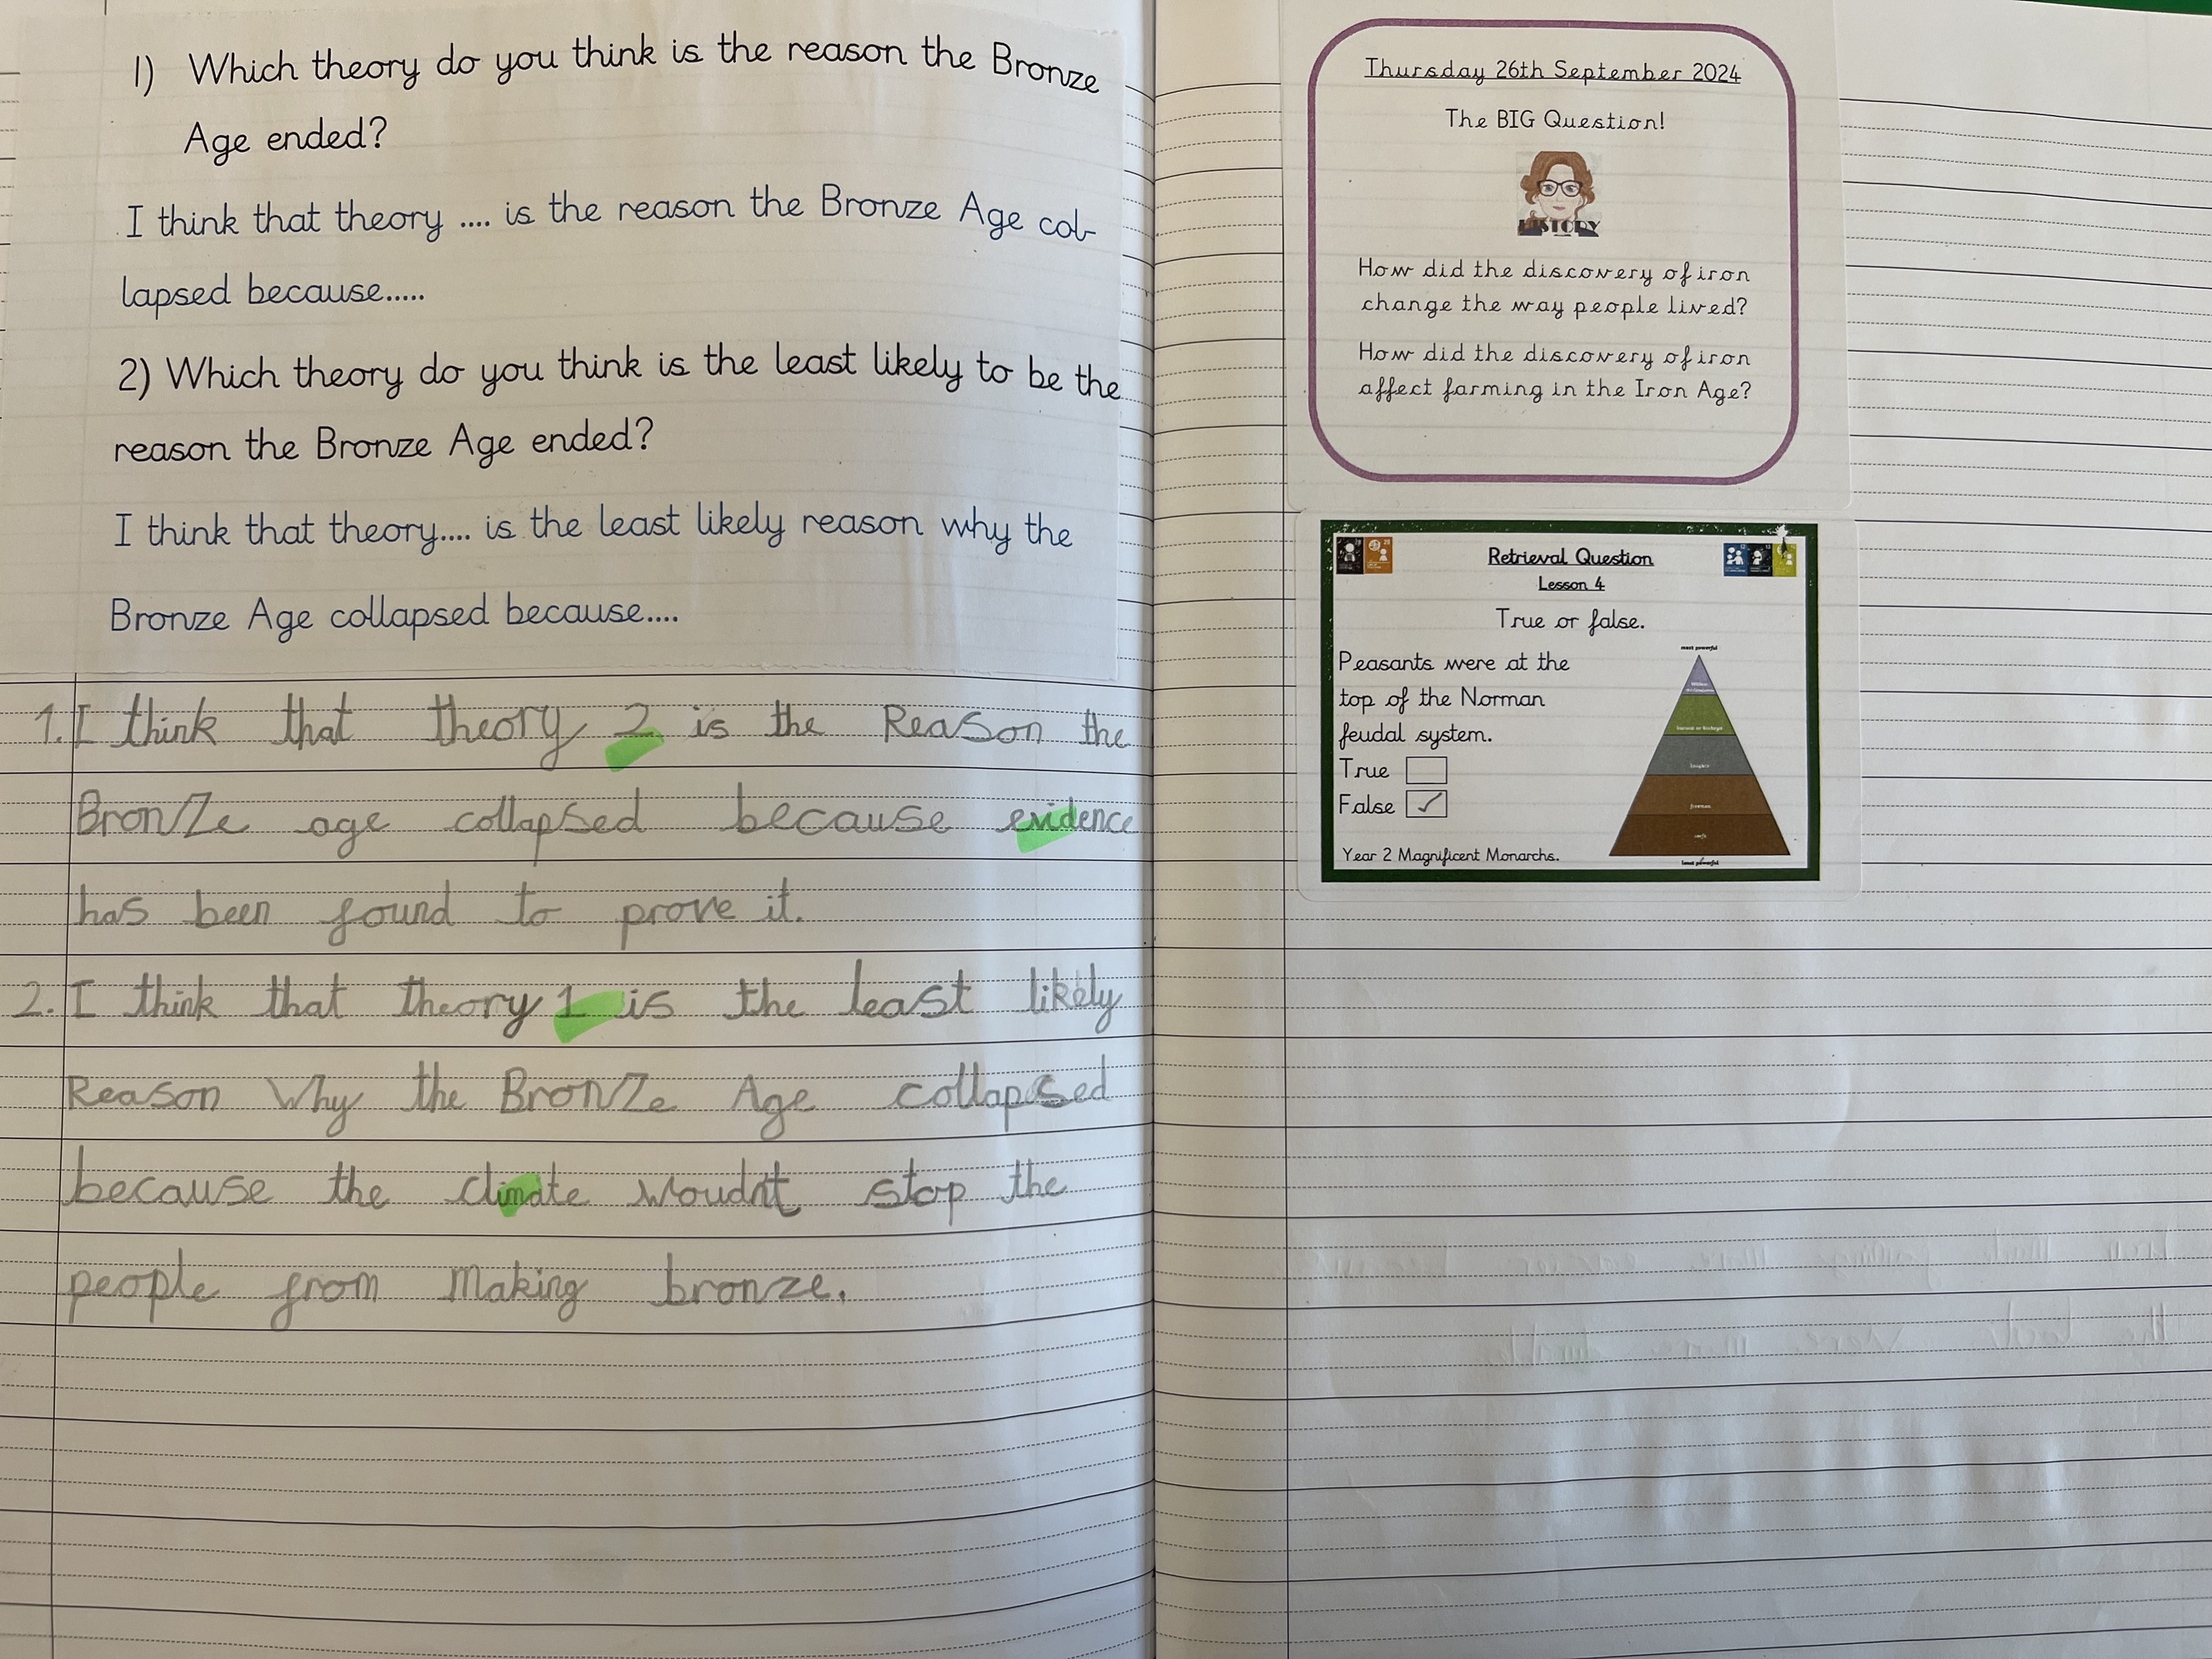 1) Which theory do you think is the reason the Bronze
Age ended?
I think that theory .... is the reason the Bronze Age col-
lapsed because.....
2) Which theory do you think is the least likely to be the
reason the Bronze Age ended?
I think that theory.... is the least likely reason why the
Bronze Age collapsed because....
1. I think that theory 2 is the Reason the
BronZe age collapsed because evidence
has been found to prove it.
2. I think that theory 1 is the least likely
Reason Why the BronZe Age collapsed
because the climate woudn't stop the
people from making bronze.
Thursday 26th September 2024
The BIG Question!
HISTORY
How did the discovery of iron
change the way people lived?
How did the discovery of iron
affect farming in the Iron Age?
Retrieval Question
Lesson 4
True or false.
Peasants were at the
top of the Norman
feudal system.
True
False ✓
Year 2 Magnificent Monarchs.
most powerful
barons or bishops
knights
freemen
serfs
least powerful